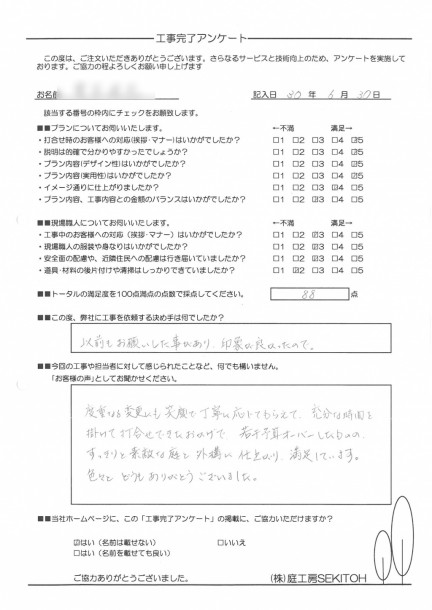 工事完了アンケート
この度は、ご注文いただきありがとうございます。さらなるサービスと技術向上のため、アンケートを実施して
おります。ご協力の程よろしくお願い申し上げます
お名前 記入日 30 年 6 月 30日
該当する番号の枠内にチェックをお願致します。
■■プランについてお伺いいたします。 ←不満 満足→
・打合せ時のお客様への対応(挨拶・マナー)はいかがでしたか? □1 □2 □3 □4 ☑5
・説明は的確で分かりやすかったでしょうか? □1 □2 □3 □4 ☑5
・プラン内容(デザイン性)はいかがでしたか? □1 □2 □3 □4 ☑5
・プラン内容(実用性)はいかがでしたか? □1 □2 □3 □4 ☑5
・イメージ通りに仕上がりましたか? □1 □2 □3 ☑4 □5
・プラン内容、工事内容との金額のバランスはいかがでしたか? □1 □2 □3 ☑4 □5
■■現場職人についてお伺いいたします。 ←不満 満足→
・工事中のお客様への対応(挨拶・マナー)はいかがでしたか? □1 □2 ☑3 □4 □5
・現場職人の服装や身なりはいかがでしたか? □1 □2 ☑3 □4 □5
・安全面の配慮や、近隣住民への配慮は行き届いていましたか? □1 □2 ☑3 □4 □5
・道具・材料の後片付けや清掃はしっかりできていましたか? □1 ☑2 □3 □4 □5
■■トータルの満足度を100点満点の点数で採点してください。 88 点
■■この度、弊社に工事を依頼する決め手は何でしたか?
以前もお願いした事があり、印象が良かったので。
■■今回の工事や担当者に対して感じられたことなど、何でも構いません。
「お客様の声」としてお聞かせください。
度重なる変更にも笑顔で丁寧に応じてもらえて、充分な時間を
掛けて打合せできたおかげで、若干予算オーバーしたものの、
すっきりと素敵な庭と外構に仕上がり、満足しています。
色々と どうもありがとうございました。
■■当社ホームページに、この「工事完了アンケート」の掲載に、ご協力いただけますか?
☑はい(名前は載せない) □いいえ
□はい(名前を載せても良い)
ご協力ありがとうございました。 (株)庭工房SEKITOH